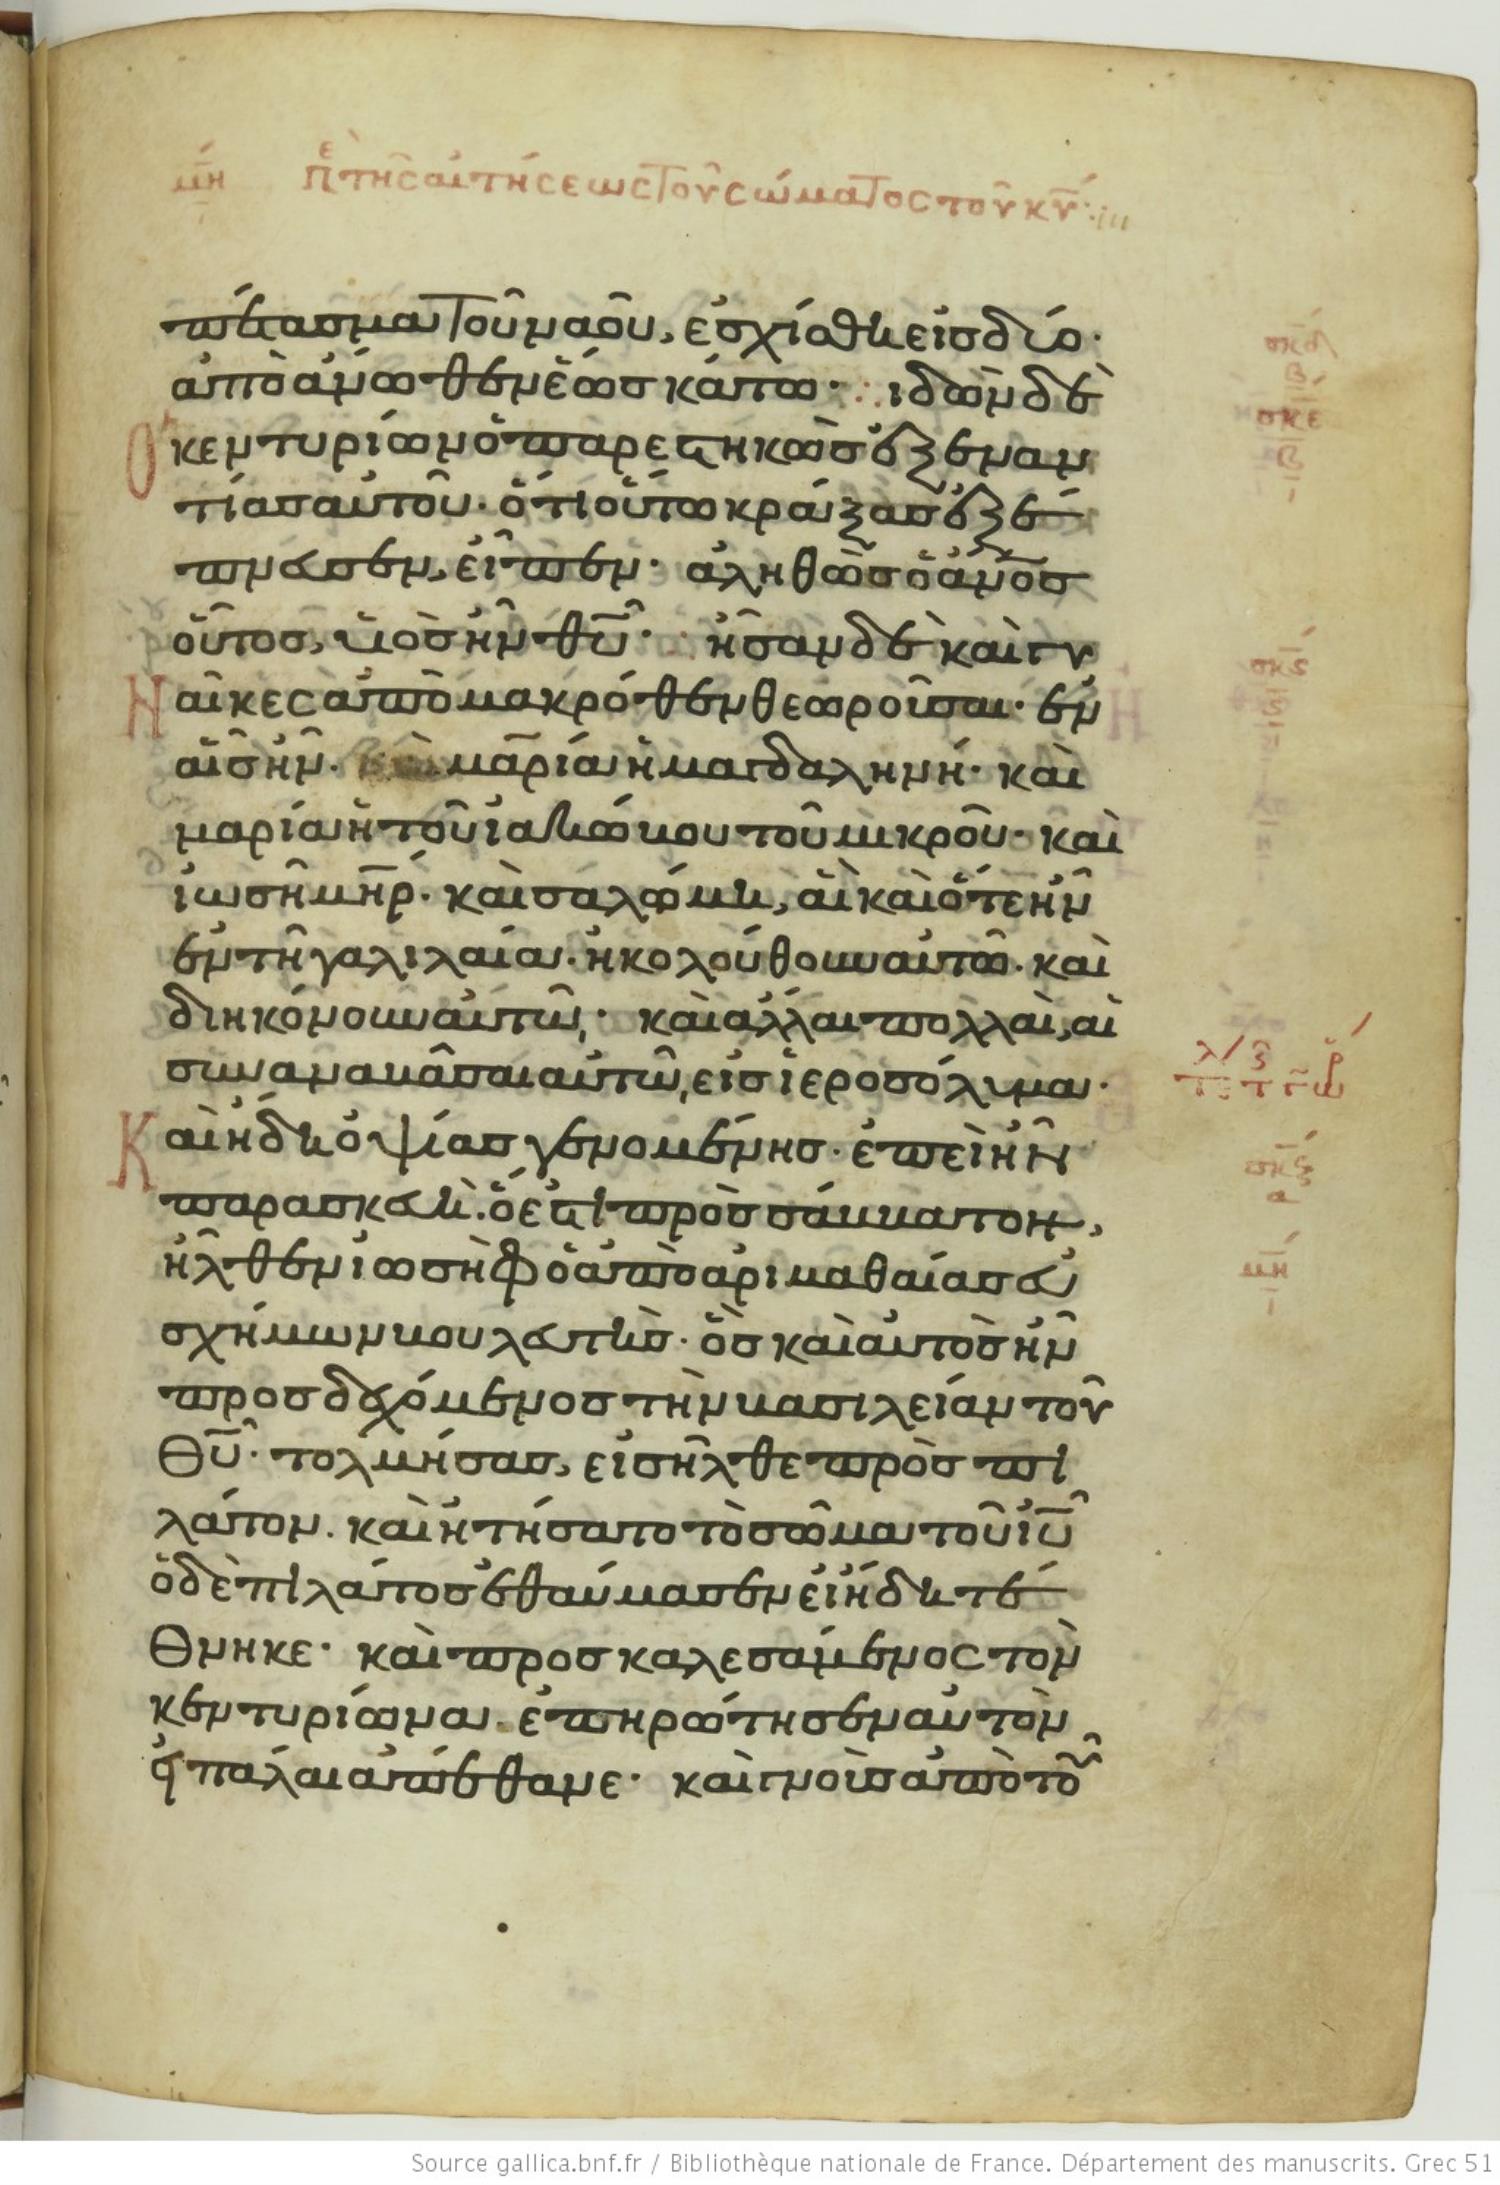 μη πε τῆς αἰτήσεως τοῦ σώματος τοῦ κῦ:
πέτασμα τοῦ ναοῦ, ἐσχίσθη εἰς δύο·
ἀπὸ ἄνωθεν ἕως κάτω· ἰδὼν δὲ
ὁ κεντυρίων ὁ παρεστηκὼς ἐξεναν
τίας αὐτοῦ· ὅτι οὕτω κράξας ἐξέ
πνευσεν, εἶπεν· ἀληθῶς ὁ ἄνος
οὗτος, υἱὸς ἦν θῦ· ἦσαν δὲ καὶ γυ
ναῖκες ἀπὸ μακρόθεν θεωροῦσαι· ἐν
αἷς ἦν· μαρία ἡ μαγδαληνή· καὶ
μαρία ἡ τοῦ ἰακώβου τοῦ μικροῦ· καὶ
ἰωσῆ μηρ· καὶ σαλώμη, αἳ καὶ ὅτε ἦν
ἐν τῆ γαλιλαία· ἠκολούθουν αὐτῶ· καὶ
διηκόνουν αὐτῶ· καὶ ἄλλαι πολλαὶ, αἱ
συναναβᾶσαι αὐτῶ, εἰς ἱεροσόλυμα·
Καὶ ἤδη ὀψίας γενομένης· ἐπεὶ ἦν
παρασκευὴ· ὅ ἐστι πρὸς σάββατον,
ἦλθεν ἰωσὴφ ὁ ἀπὸ ἀριμαθαίας εὐ
σχήμων βουλευτὴς· ὃς καὶ αὐτὸς ἦν
προσδεχόμενος τὴν βασιλείαν τοῦ
θῦ· τολμήσας, εἰσῆλθε πρὸς πι
λάτον· καὶ ἠτήσατο τὸ σῶμα τοῦ ἰῦ
ὁ δὲ πιλάτος ἐθαύμασεν εἰ ἤδη τέ
θνηκε· καὶ προσκαλεσάμενος τὸν
κεντυρίωνα· ἐπηρώτησεν αὐτὸν
εἰ πάλαι ἀπέθανε· καὶ γνοὺς ἀπὸ τοῦ
σκδ
β
σκε
β
σκς
ς
σκζ
α
μη
Source gallica.bnf.fr / Bibliothèque nationale de France. Département des manuscrits. Grec 51